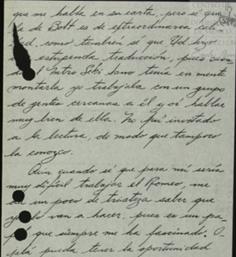 que me habla en su carta, pero sé que
la de Bolt es de extraordinaria cali-
dad, como también sé que Ud. hizo
estupenda traducción, pues cuan-
do Intro Sito Sano tenía en mente
montarla yo trabajaba con un grupo
de gente cercanas a él y oí hablar
muy bien de ella. No fuí invitado
a la lectura, de modo que tampoco
la conozco.
Aun cuando sé que para mí sería
muy difícil trabajar el Romeo, me
da un poco de tristeza saber que
ya lo van a hacer, pues es un pa-
pel que siempre me ha fascinado. O
jalá pueda tener la oportunidad